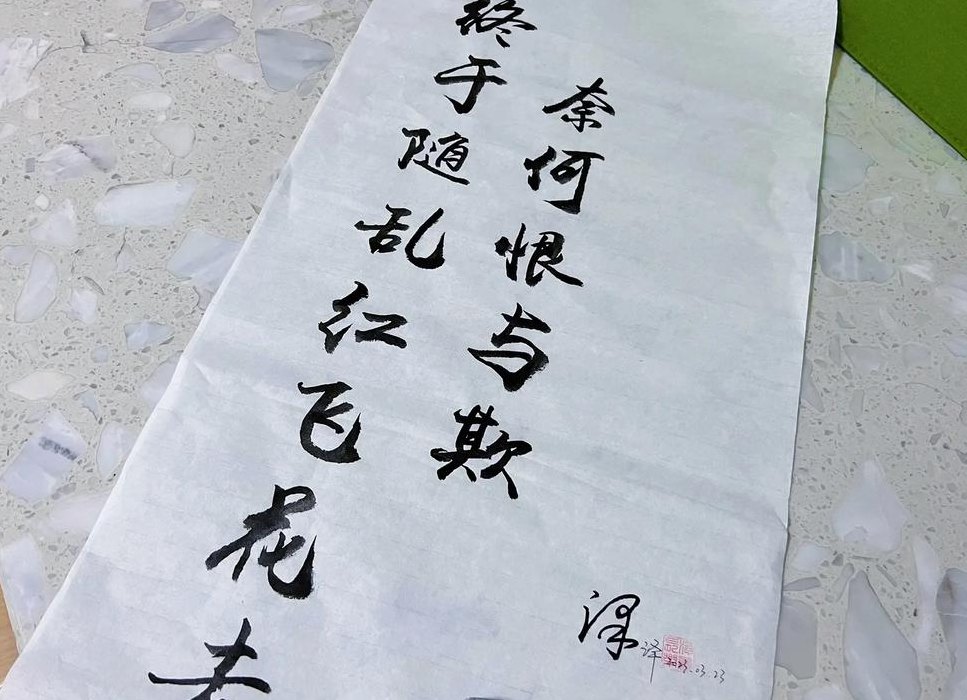 终于随乱红飞花去
奈何恨与欺
译 2023.03.23